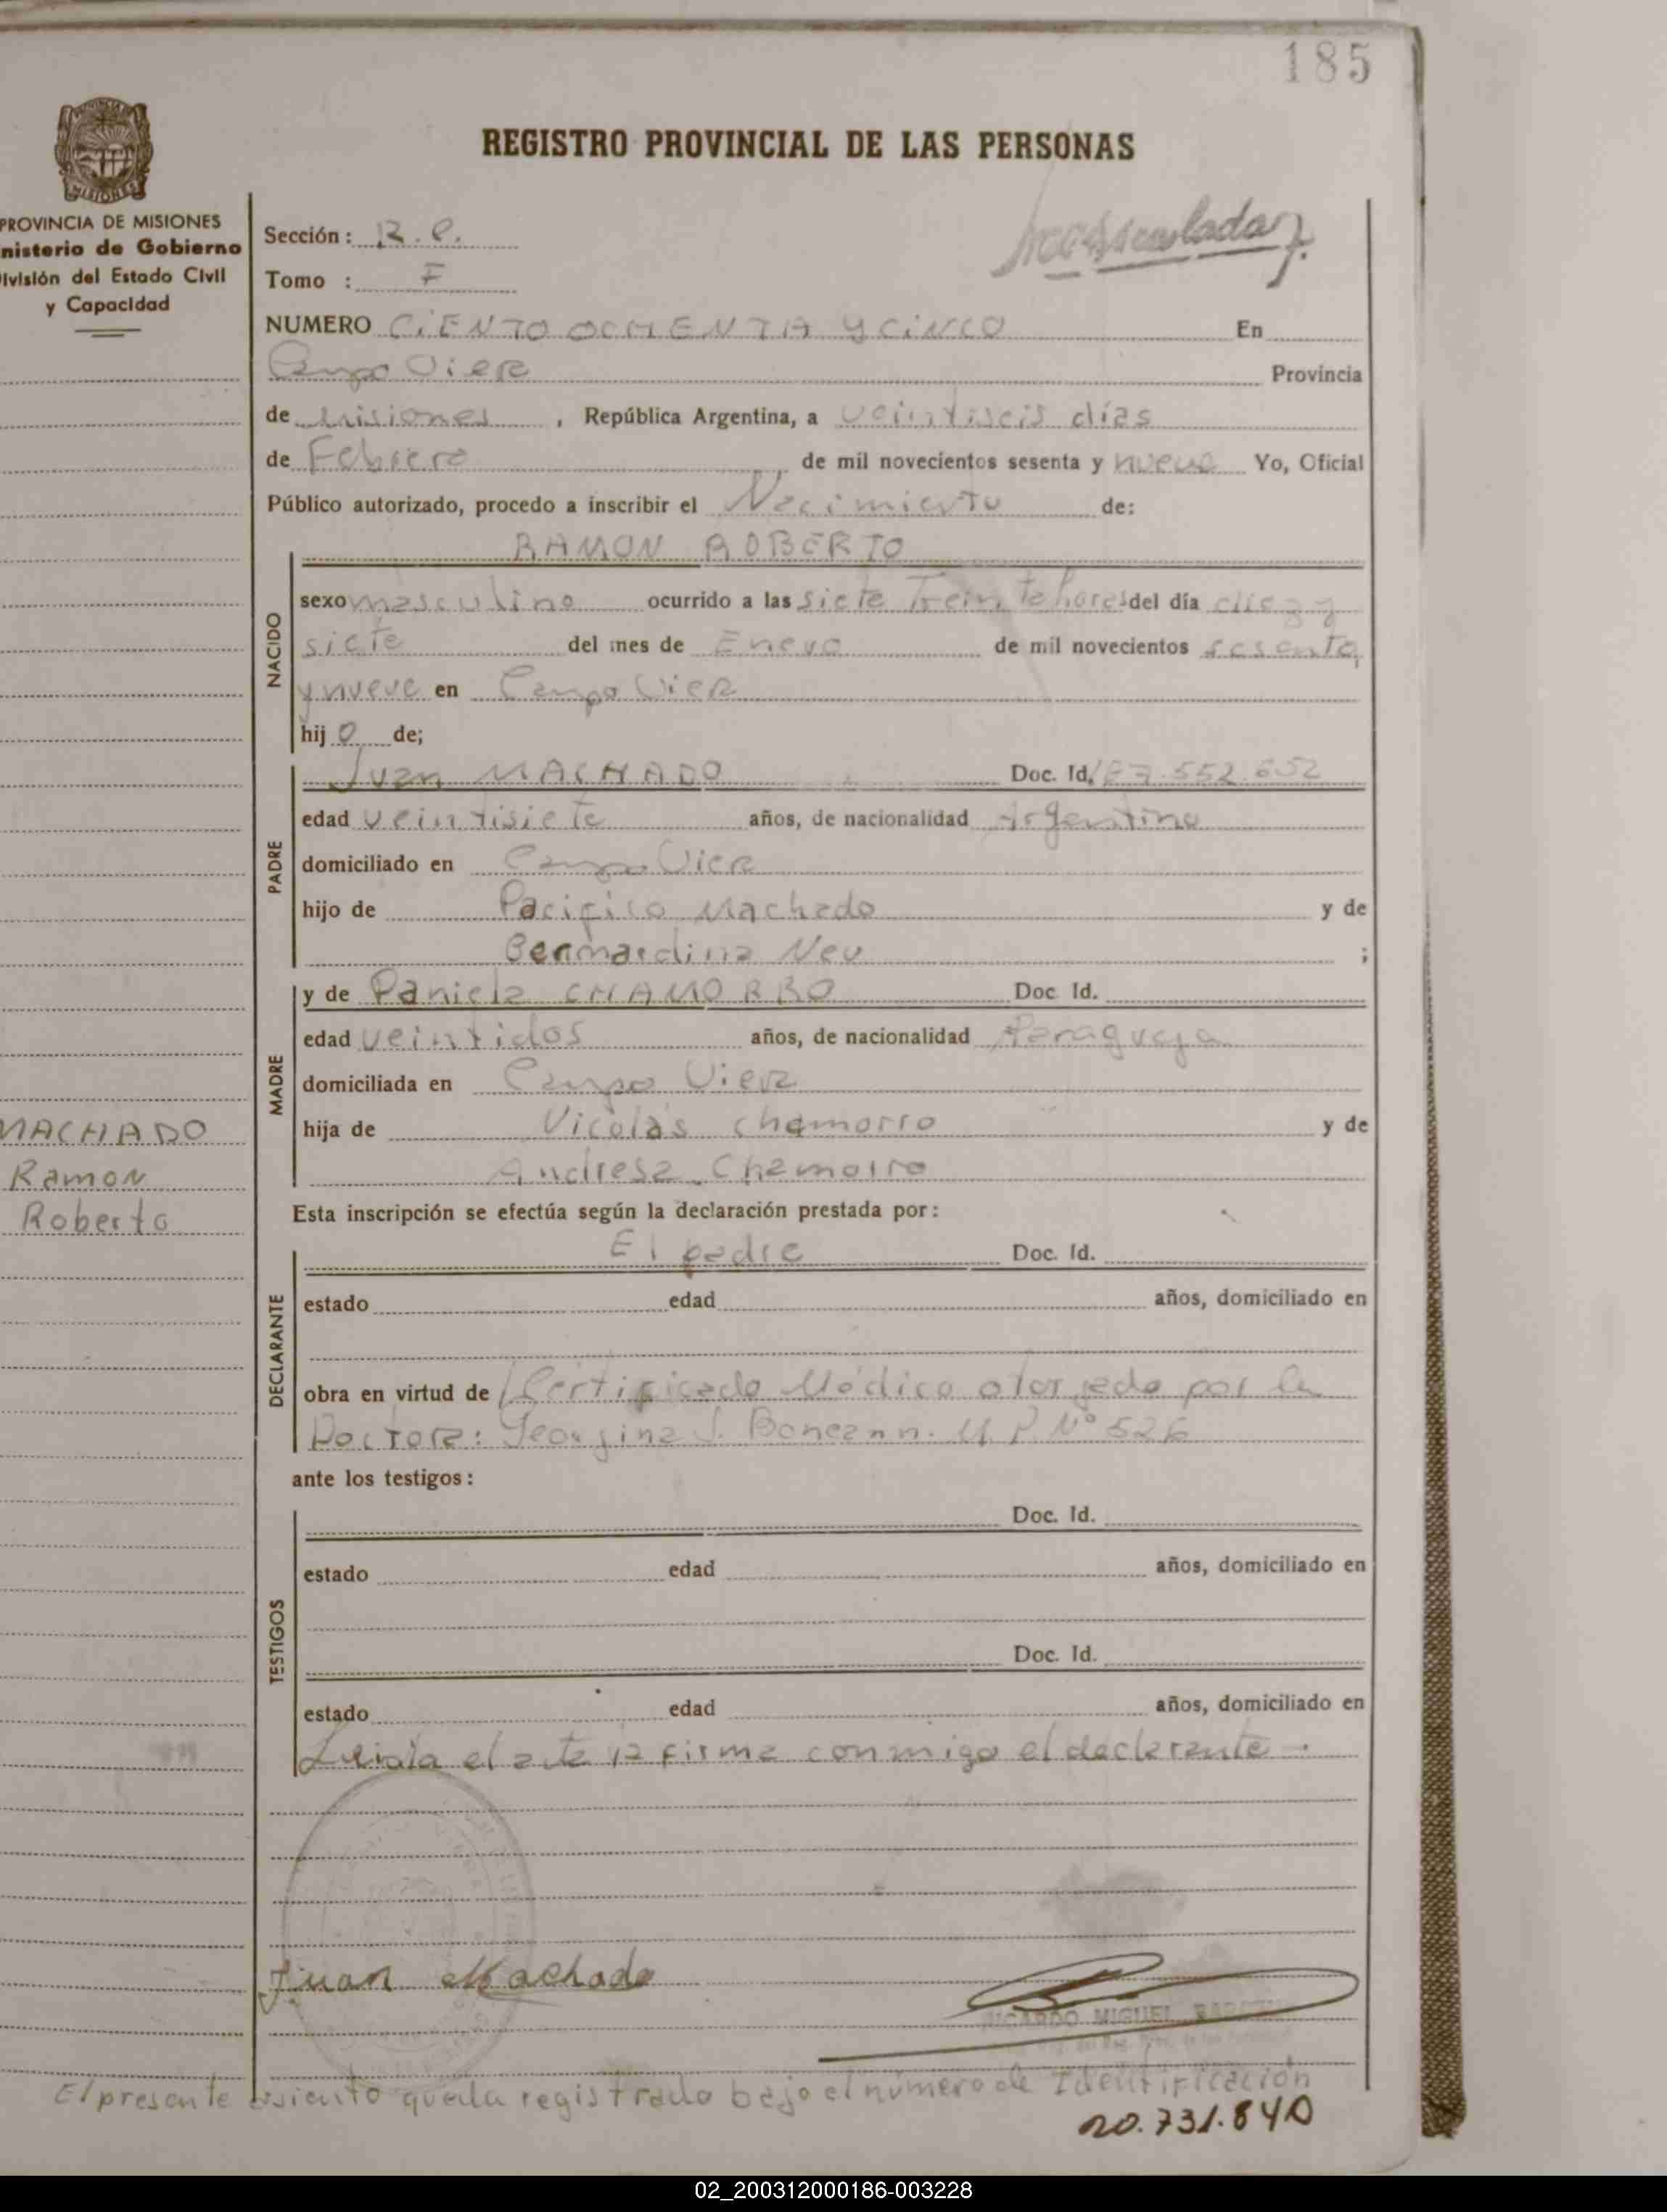 185
REGISTRO PROVINCIAL DE LAS PERSONAS
MISIONES
PROVINCIA DE MISIONES
nisterio de Gobierno
ivisión del Estado Civil
y Capacidad
Sección: R. P.
Tomo : F
NUMERO CIENTO OCHENTA Y CINCO En
Campo Viera Provincia
de Misiones, República Argentina, a veintiseis días
de Febrero de mil novecientos sesenta y nueve Yo, Oficial
Público autorizado, procedo a inscribir el Nacimiento de:
NACIDO
RAMON ROBERTO
sexo masculino ocurrido a las siete treinta horas del día diez y
siete del mes de Enero de mil novecientos sesenta
y nueve en Campo Viera
hijo de;
PADRE
Juan MACHADO Doc. Id. 7.552.652
edad veintisiete años, de nacionalidad Argentina
domiciliado en Campo Viera
hijo de Pacifico Machado y de
Bernardina Neu ;
MADRE
y de Daniela CHAMORRO Doc Id.
edad veintidos años, de nacionalidad Paraguaya
domiciliada en Campo Viera
hija de Nicolás Chamorro y de
Andresa Chamorro
MACHADO
Ramon
Roberto
Esta inscripción se efectúa según la declaración prestada por:
DECLARANTE
El padre Doc. Id.
estado edad años, domiciliado en
obra en virtud de Certificado Médico otorgado por la
Doctora: Georgina J. M.P. Nº 526
ante los testigos:
TESTIGOS
Doc. Id.
estado edad años, domiciliado en
Doc. Id.
estado edad años, domiciliado en
Leida el acta la firma conmigo el declarante.
Juan Machado
RICARDO MIGUEL
El presente asiento queda registrado bajo el número de Identificación
20.731.840
02_200312000186-003228